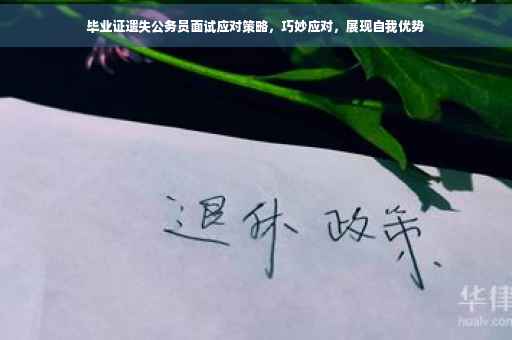 毕业证遗失公务员面试应对策略，巧妙应对，展现自我优势
退休 政策
华律
hualv.com